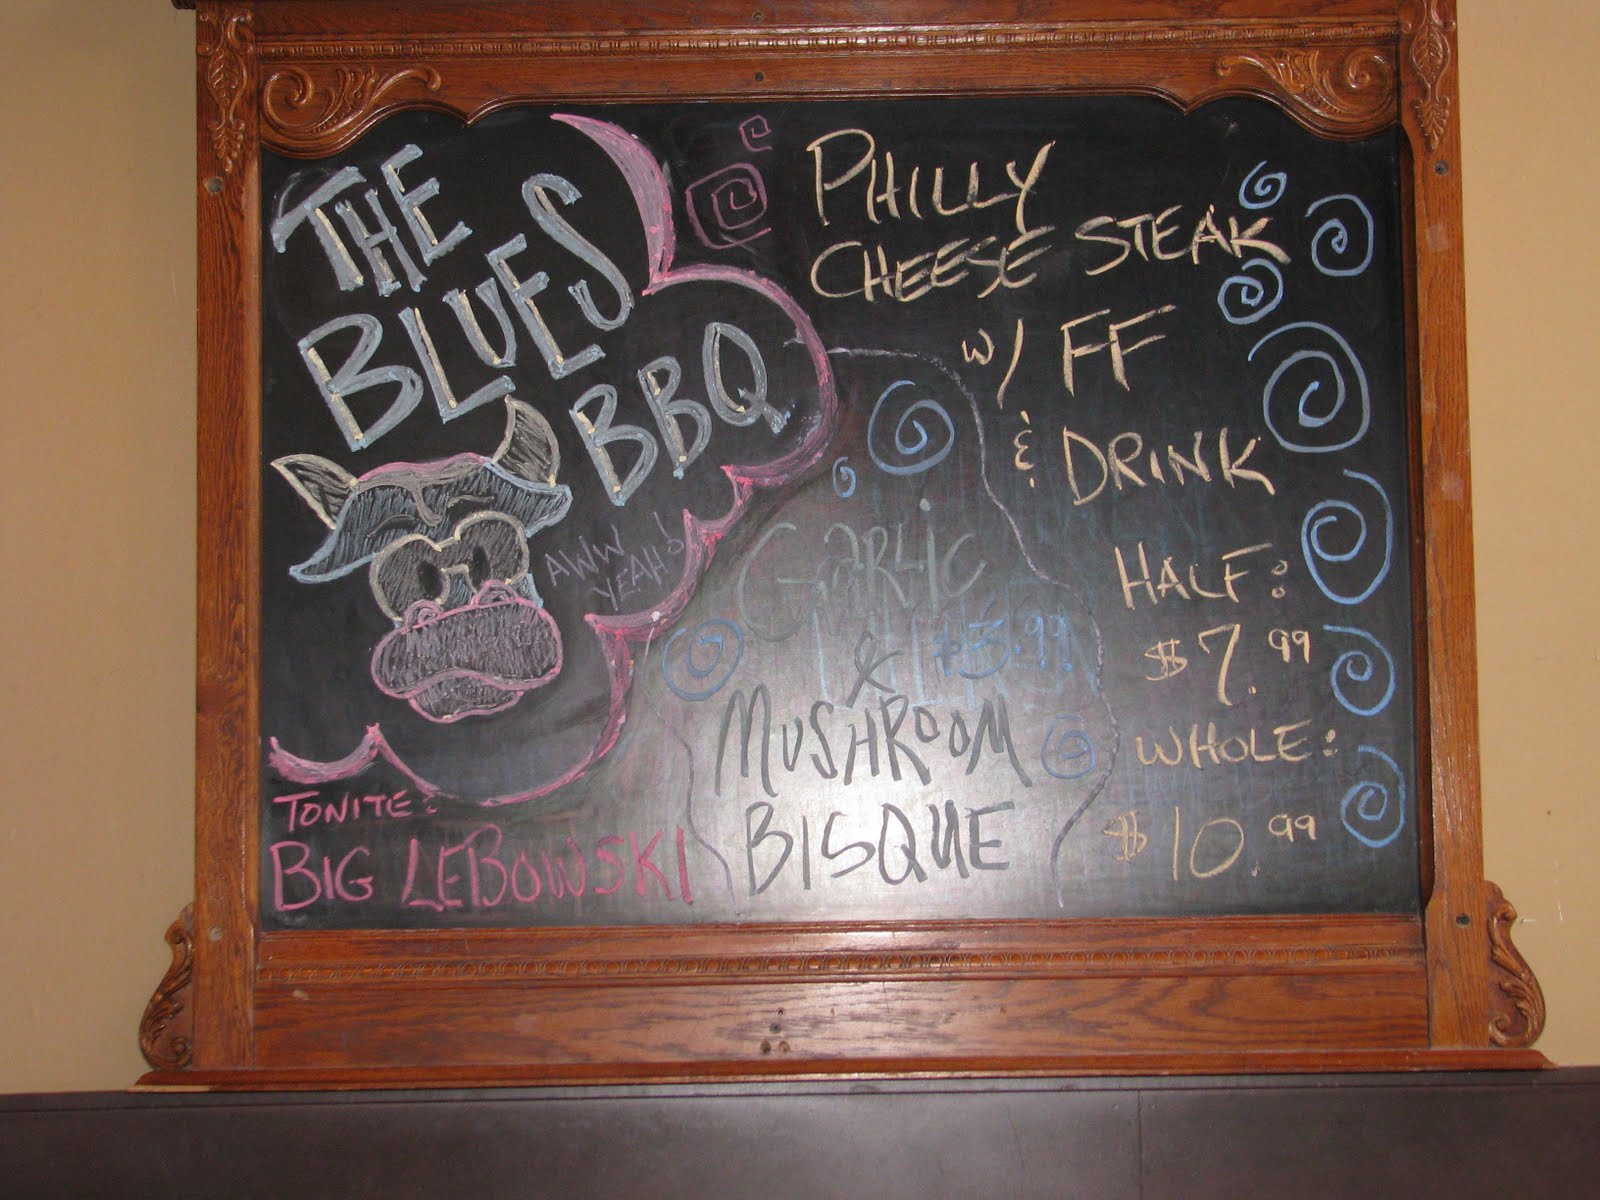 THE
BLUES
BBQ
AWW
YEAH!
TONITE:
BIG LEBOWSKI
GARLIC
$3.99
&
MUSHROOM
BISQUE
PHILLY
CHEESE STEAK
W/ FF
& DRINK
HALF:
$7.99
WHOLE:
$10.99